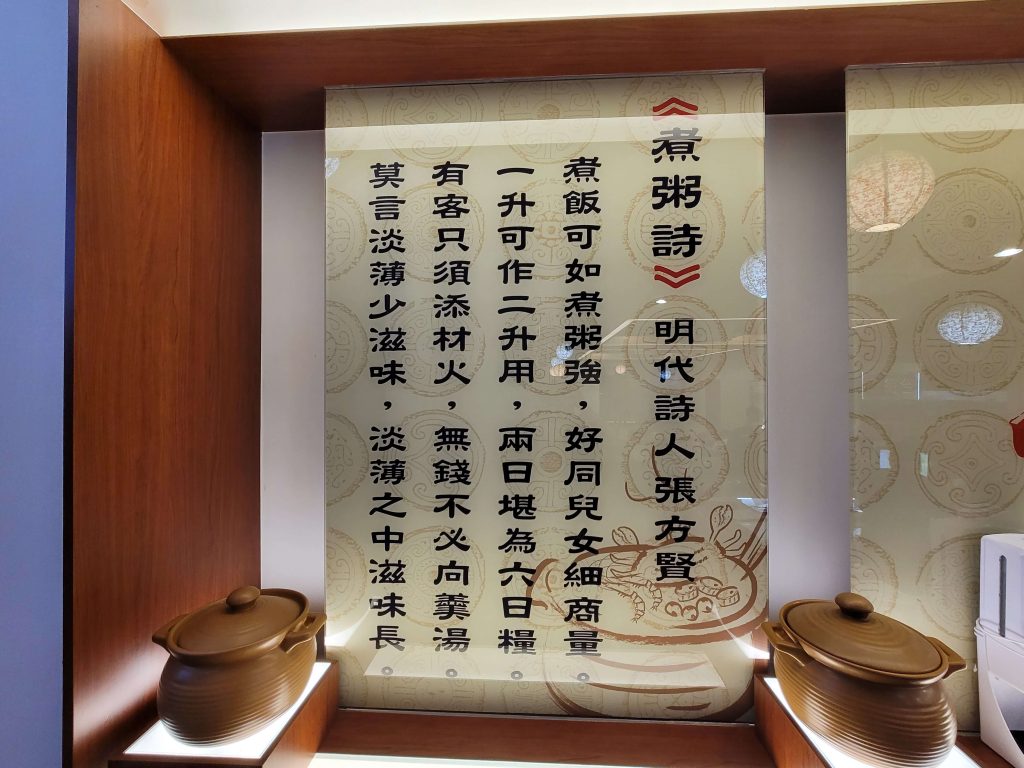 《煮粥詩》 明代詩人張方賢
煮飯可如煮粥強，好同兒女細商量
一升可作二升用，兩日堪為六日糧
有客只須添材火，無錢不必向羹湯
莫言淡薄少滋味，淡薄之中滋味長